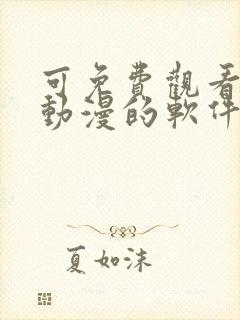 可免費觀看
動漫的軟件
夏如沫